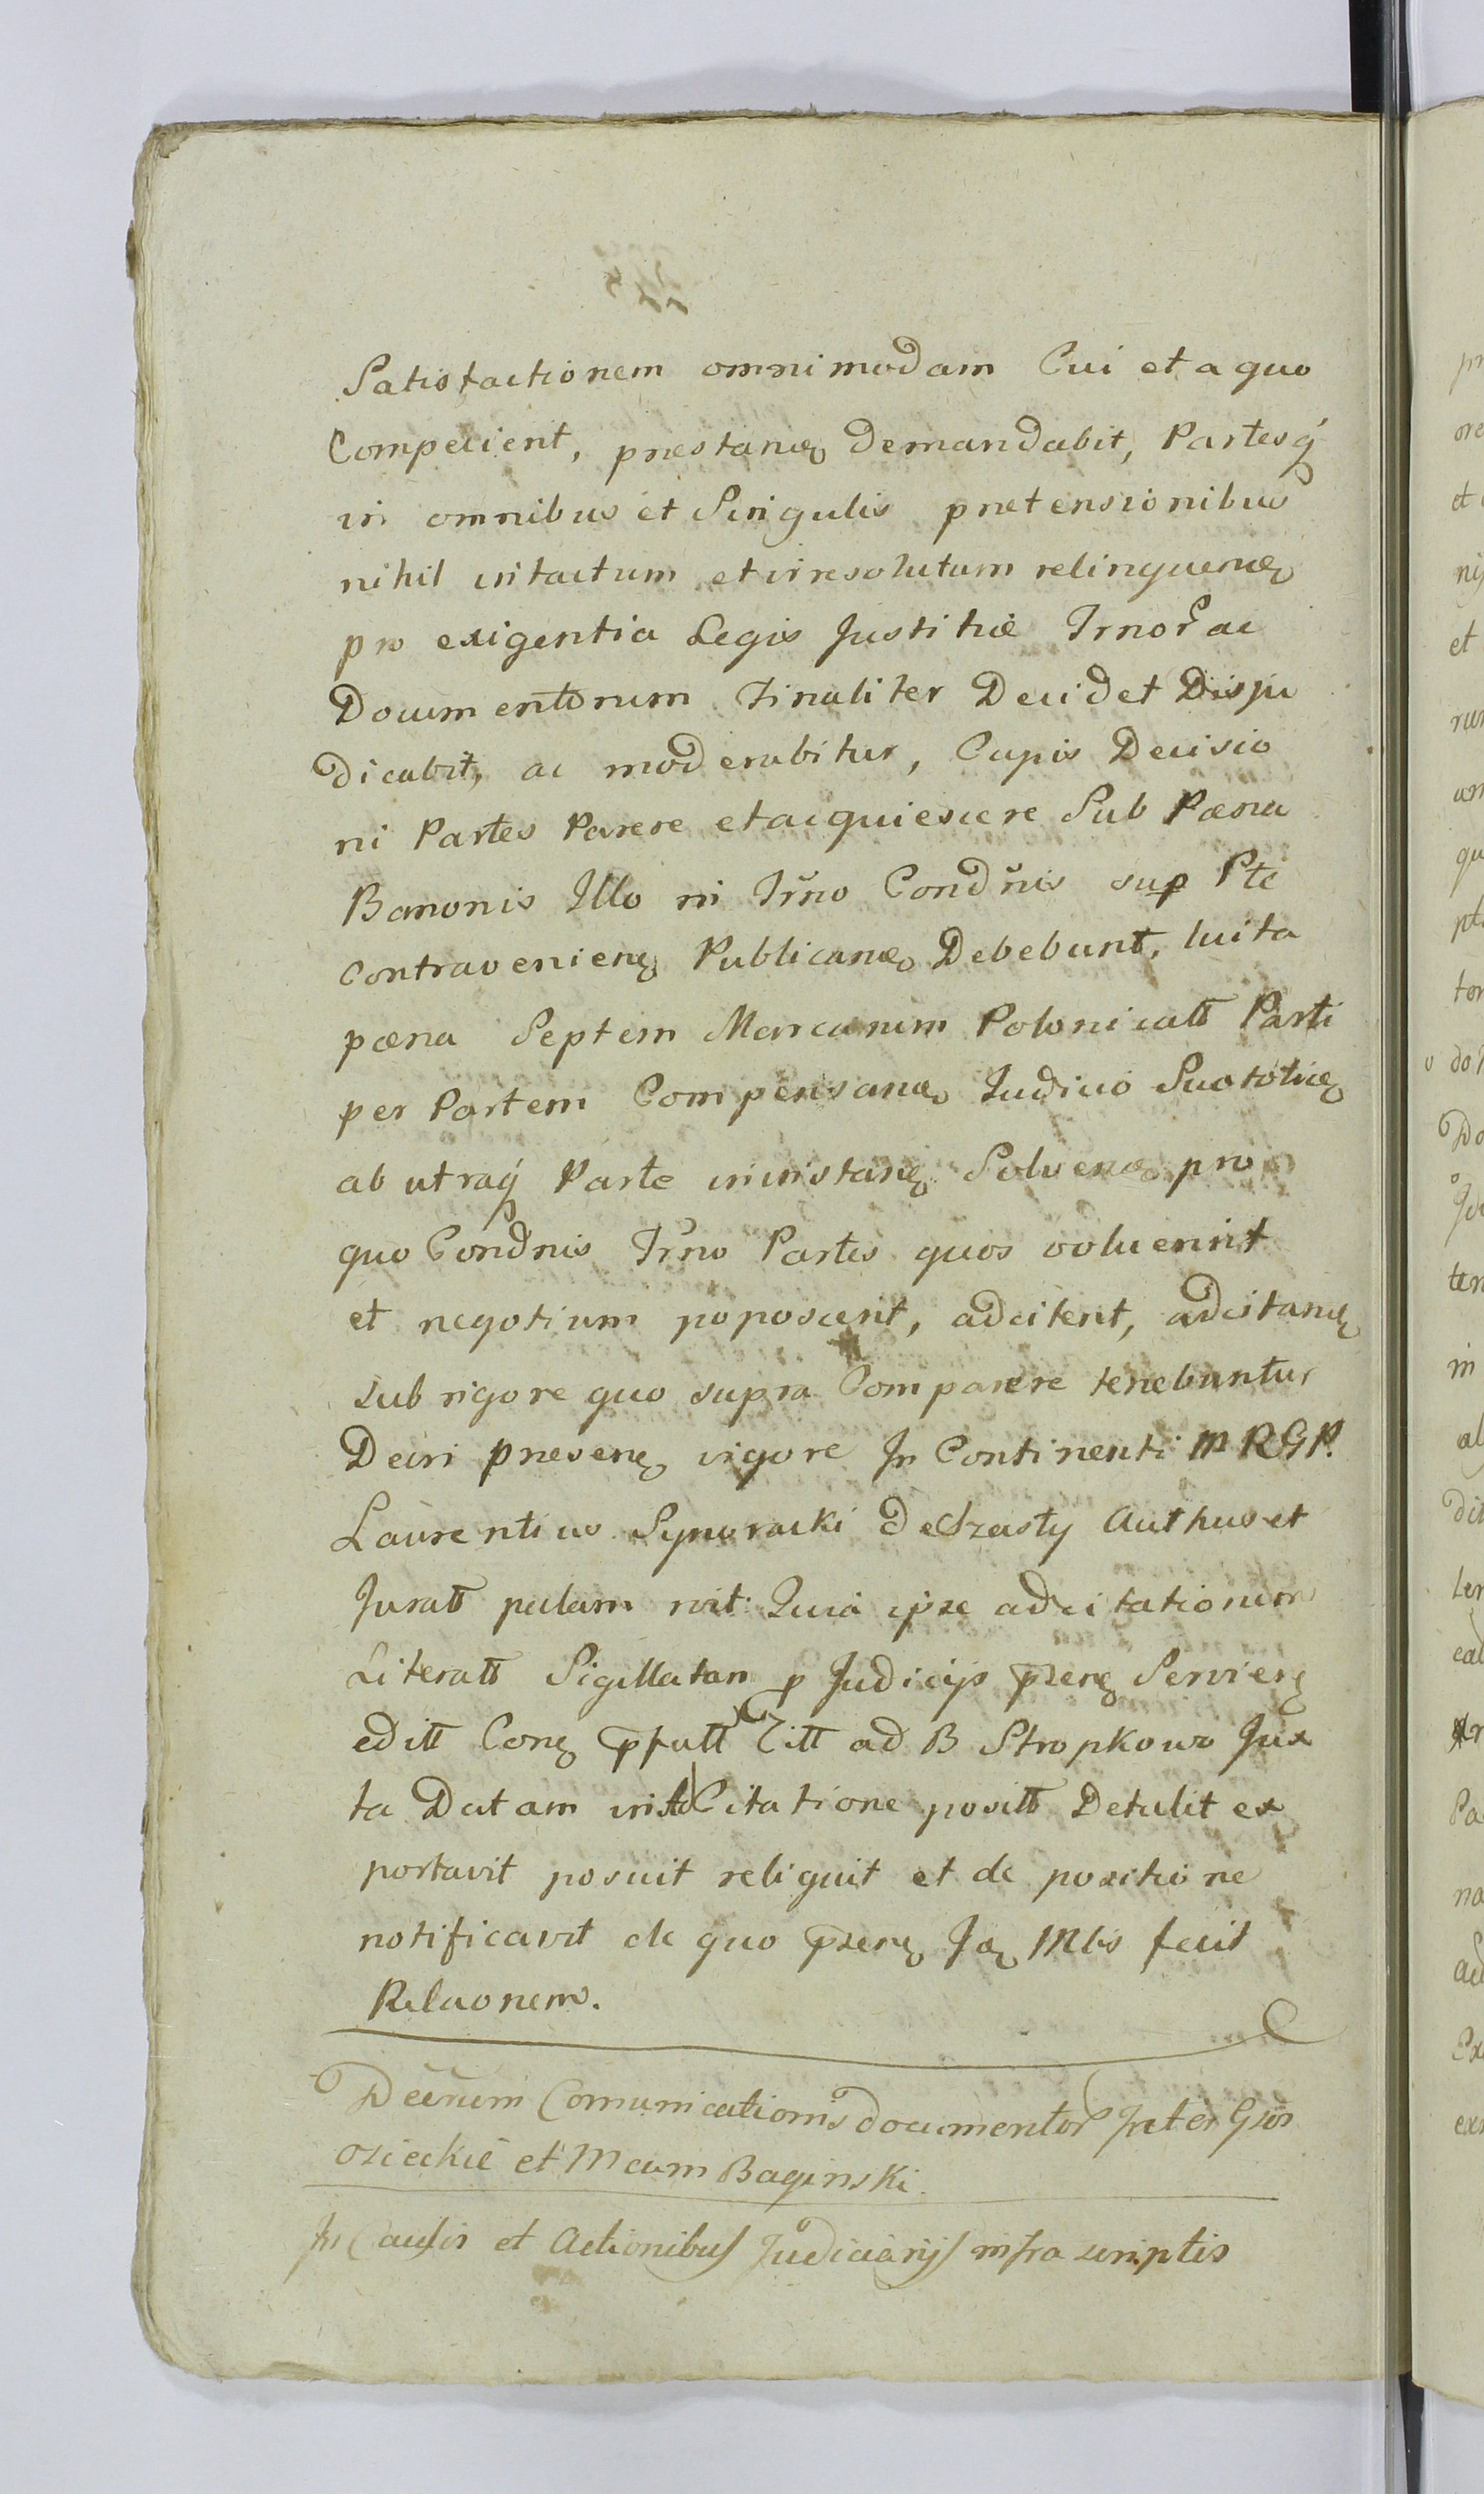 Satisfactionem omnimodam Cui et a quo
Compecient, prestanđ Demandabit, Partesq́
in omnibus et Singulis pretensionibus
nihil intactum et irresolutum relinquenđ
pro exigentia Legis Justitiæ Jrnoꝝ ac
Documentorum Finaliter Decidet Disju
dicabit, ac moderabitur, Cujus Decisio
ni Partes Parere et acquiescere Sub Pœna
Bannonis Illo ni Trno Condnis sup Pte
Contravenienꝫ Publicanđ Debebunt, luita
pœna Septem Marcarum Polonicałł Parti
per Partem Compensanđ Judicio Suo totieꝫ
ab utraq́ Parte ininstanꝫ Solvenđ pro
quo Condnis Trno Partes quos voluerint
et negotium poposcerit, adcitent, adcitanđ
sub rigore quo supra Comparere tenebuntur
Decri presenꝫ vigore In Continenti M RGP.
Laurentius Synoracki de Szasty Authus et
Jurałł palam rvit Quia ipse adcitationem
Literałł Sigillatam p Judicijs pzenꝫ Servienꝫ
editł Conꝫ pfułł Citł ad B Stropkowo Jux
ta Datam inibi Citatione positł Detulit ex
portavit posuit reliquit et de positione
notificavit de quo pzenꝫ Jđ Mtis fecit
Relaonem.
Decrum Comunicationis documentoꝝ Inter Gsos
Osieckie et Mcum Baginski.
In Causis et Actionibus Judiciarijs infra scriptis